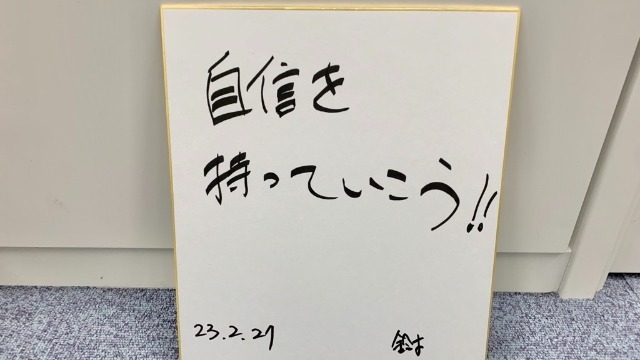 自信を
持っていこう!!
23.2.27